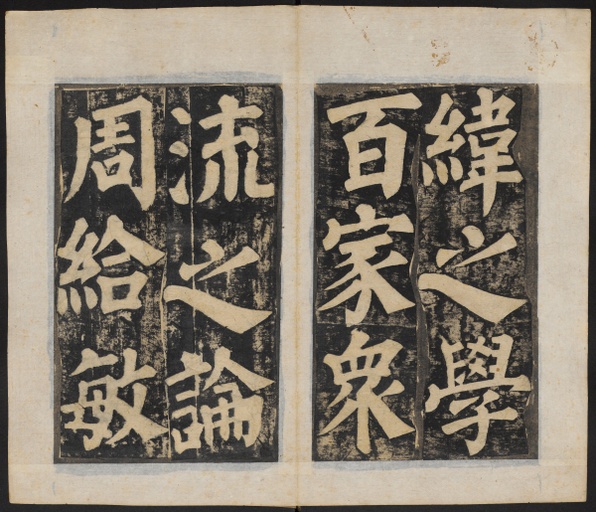 緯之學
百家衆
流之論
周給敏